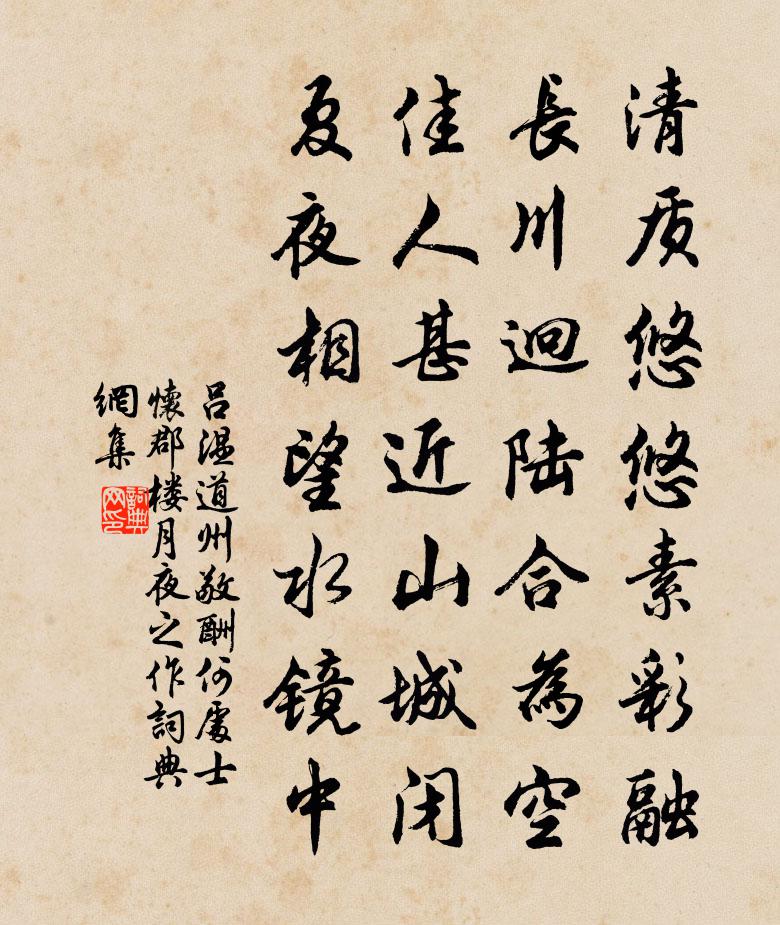 清质悠悠素彩融
長川迥陆合為空
佳人甚近山城闭
夏夜相望水镜中
吕温道州敬酬何處士
懷郡楼月夜之作詞典
網集
詞典网印